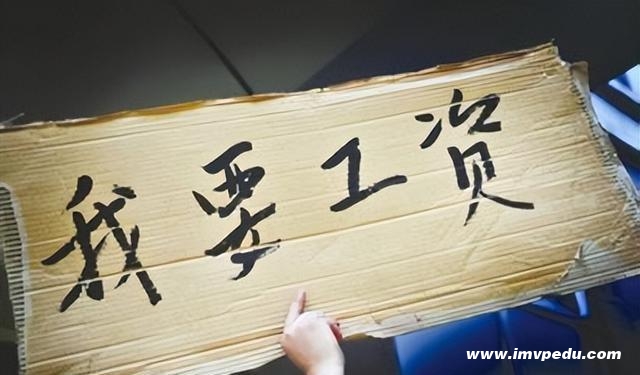 我要工资
www.imvpedu.com